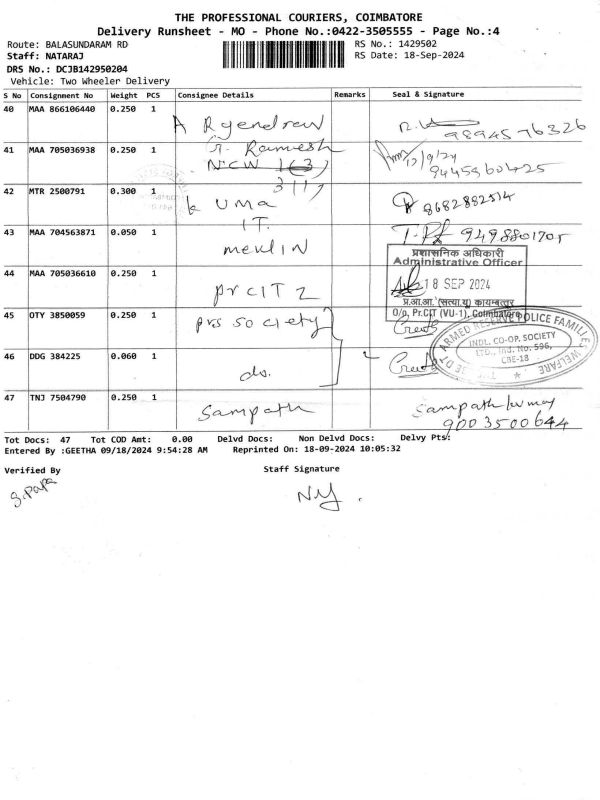 THE PROFESSIONAL COURIERS, COIMBATORE
Delivery Runsheet - MO - Phone No.:0422-3505555 - Page No.:4
Route: BALASUNDARAM RD
RS No.: 1429502
Staff: NATARAJ
RS Date: 18-Sep-2024
DRS No.: DCJB142950204
Vehicle: Two Wheeler Delivery
S No Consignment No Weight PCS Consignee Details Remarks Seal & Signature
40 MAA 866106440 0.250 1
9894576326
41 MAA 705036938 0.250 1 Ramesh
NCW
3117
9445960425
42 MTR 2500791 0.300 1 UMA
8682882514
I T.
43 MAA 704563871 0.050 1 9498801705
प्रशासनिक अधिकारी
Administrative Officer
44 MAA 705036610 0.250 1 pr CIT 2
18 SEP 2024
प्र.आ.आ. (सत्या.यू) कोयम्बत्तूर
O/o, Pr.CIT (VU-1), Coimbatore
45 OTY 3850059 0.250 1 prs society
ARMED RESERVE POLICE FAMILIES WELFARE
INDL. CO-OP. SOCIETY
LTD., Ind. No. 596,
CBE-18
46 DDG 384225 0.060 1 do.
47 TNJ 7504790 0.250 1 Sampath Sampath
9003500644
Tot Docs: 47 Tot COD Amt: 0.00 Delvd Docs: Non Delvd Docs: Delvy Pts:
Entered By :GEETHA 09/18/2024 9:54:28 AM Reprinted On: 18-09-2024 10:05:32
Verified By Staff Signature